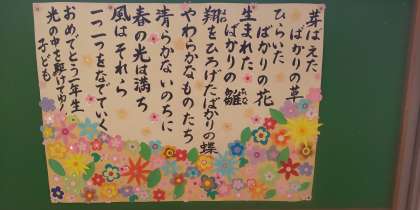 芽ばえた
ばかりの草
ひらいた
ばかりの花
生まれた
ばかりの雛
ひな
翔をひろげたばかりの蝶
やわらかなものたち
清らかないのちに
春の光は満ち
風はそれら
一つ一つをなでていく
おめでとう一年生
光の中を駆けてゆく
子ども